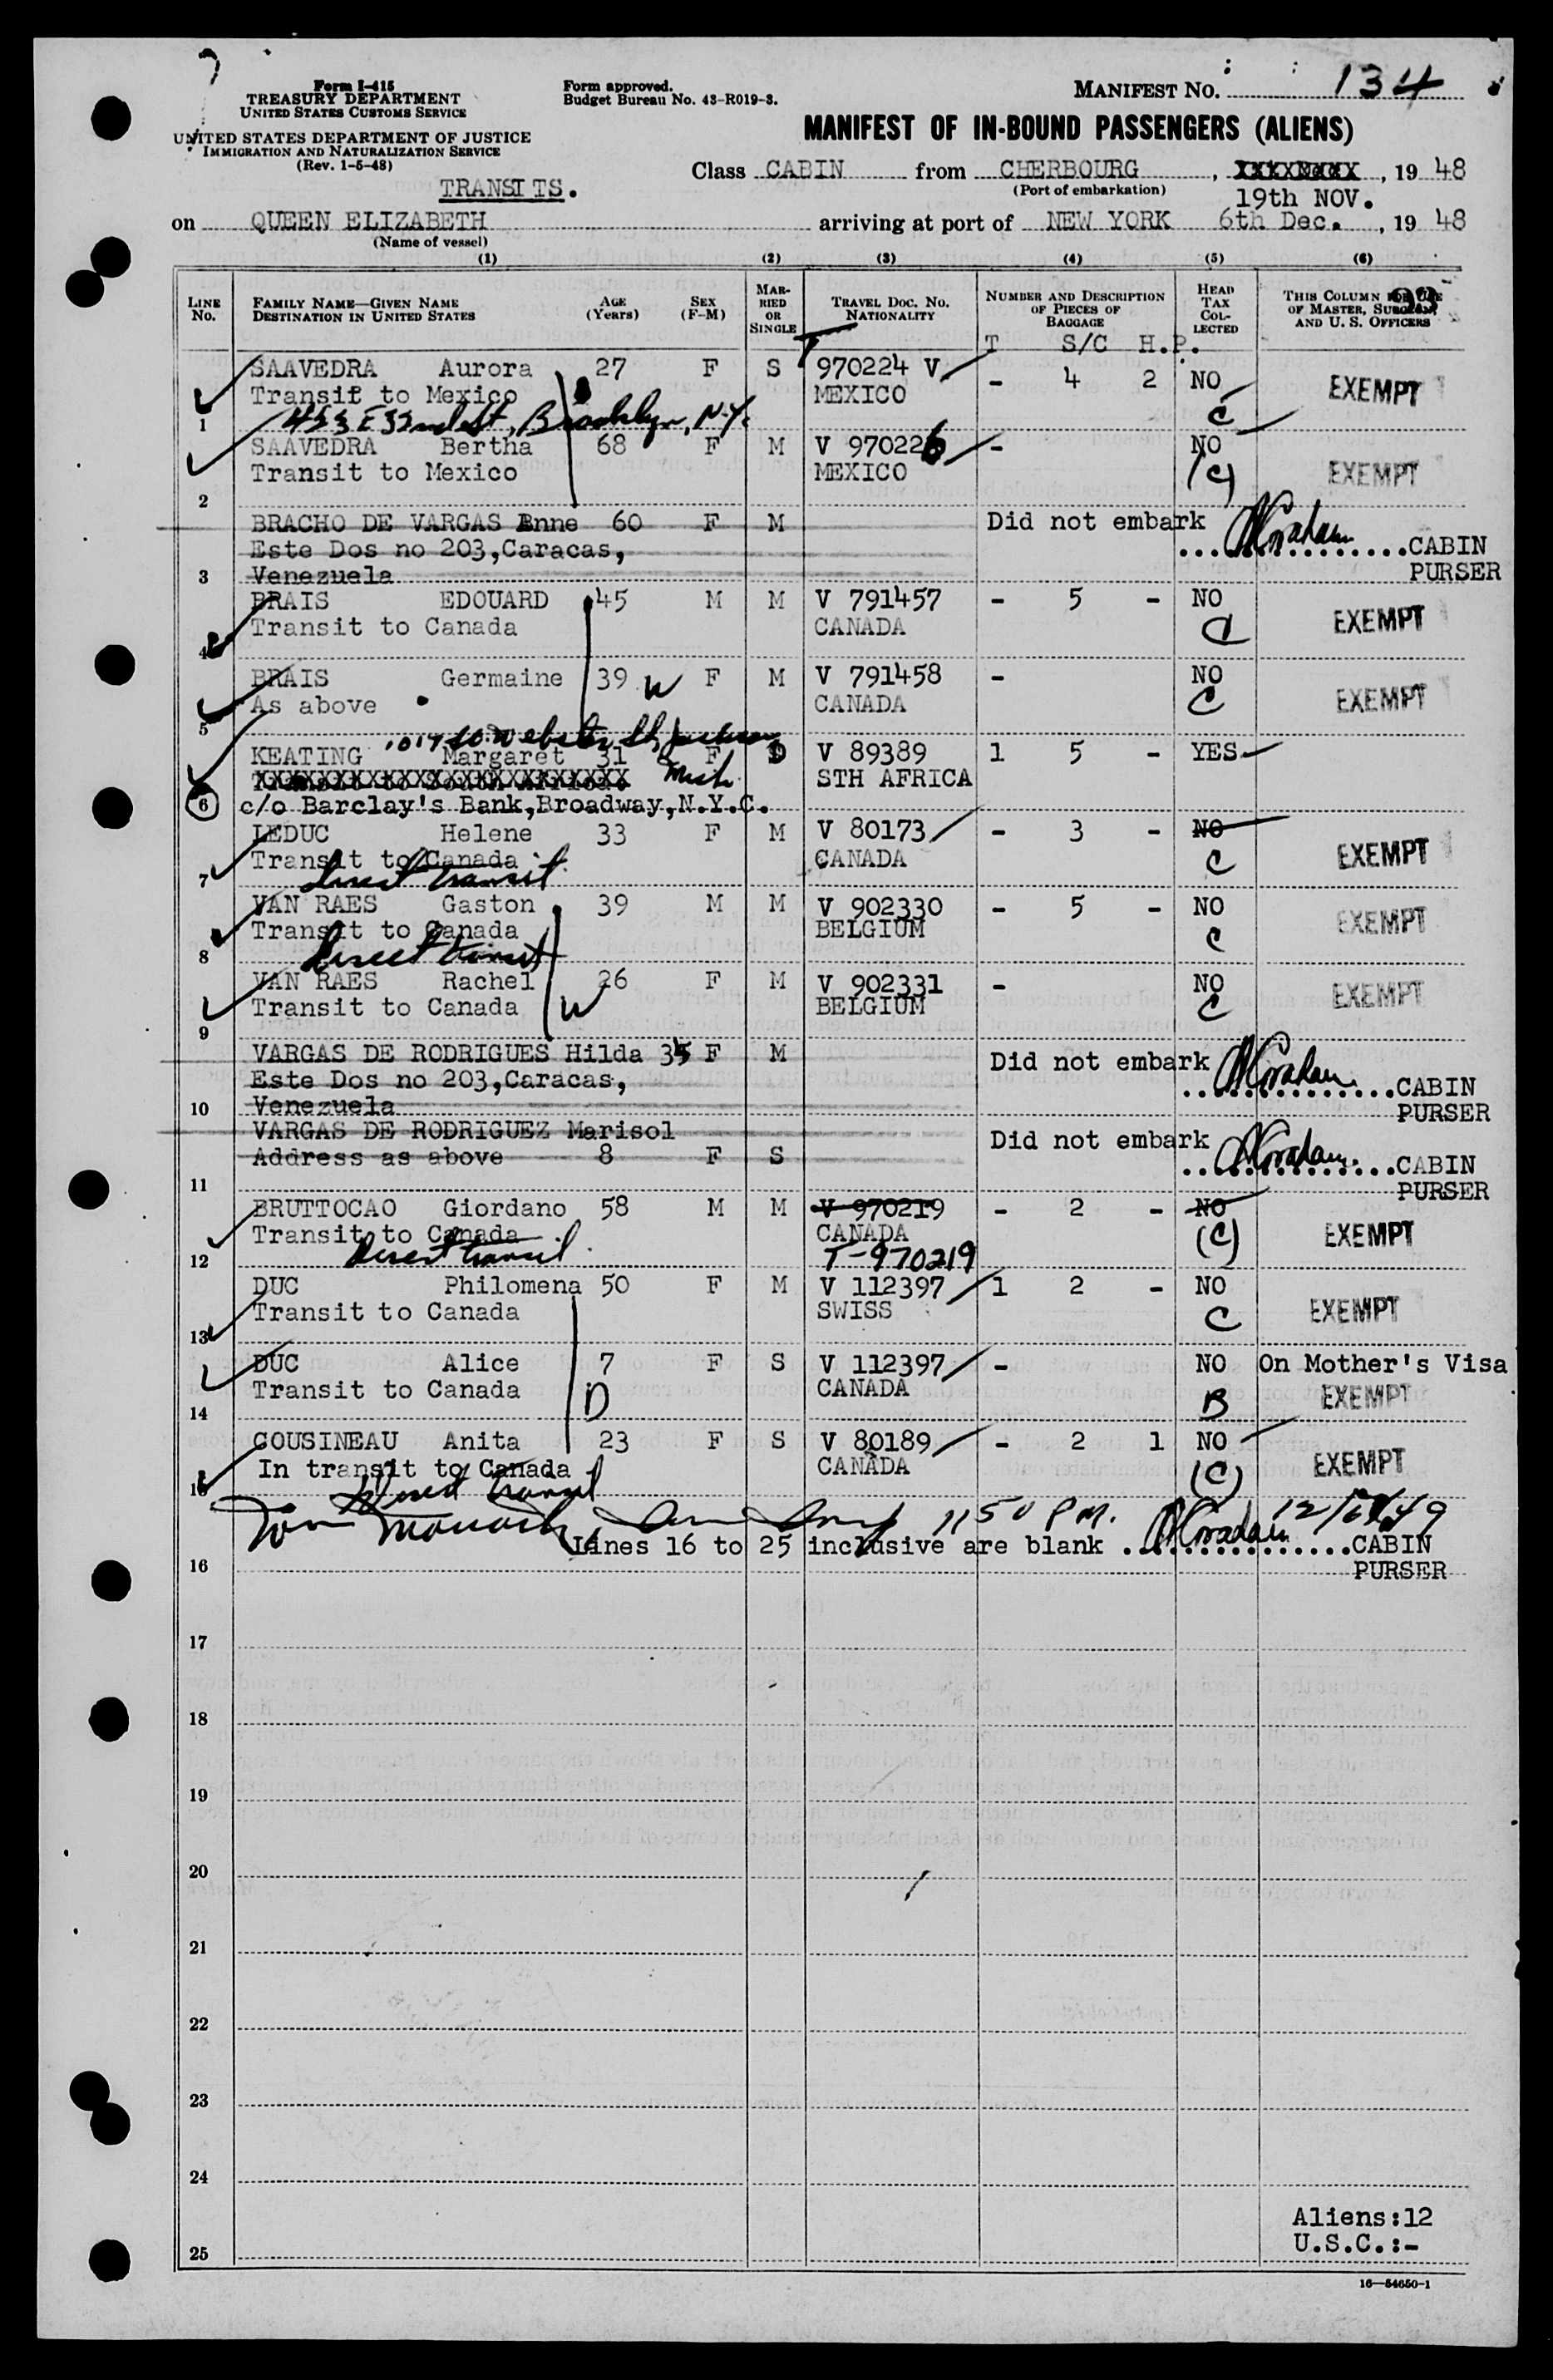 7
Form I-415
TREASURY DEPARTMENT
UNITED STATES CUSTOMS SERVICE
UNITED STATES DEPARTMENT OF JUSTICE
IMMIGRATION AND NATURALIZATION SERVICE
(Rev. 1-5-48)
Form approved.
Budget Bureau No. 43-R019-3.
MANIFEST NO. 134
MANIFEST OF IN-BOUND PASSENGERS (ALIENS)
TRANSITS.
Class CABIN from CHERBOURG, 19 48
(Port of embarkation)
19th NOV.
on QUEEN ELIZABETH arriving at port of NEW YORK 6th Dec., 19 48
(Name of vessel)
(1) (2) (3) (4) (5) (6)
LINE No. FAMILY NAME—GIVEN NAME DESTINATION IN UNITED STATES AGE (Years) SEX (F-M) MARRIED OR SINGLE TRAVEL DOC. NO. NATIONALITY NUMBER AND DESCRIPTION OF PIECES OF BAGGAGE HEAD TAX COLLECTED THIS COLUMN FOR USE OF MASTER, SURGEON, AND U. S. OFFICERS
93
T S/C H.P.
SAAVEDRA Aurora 27 F S T 970224 V - 4 2 NO EXEMPT
Transit to Mexico MEXICO C
1 453 E 32nd St, Brooklyn, N.Y.
SAAVEDRA Bertha 68 F M V 970226 - NO EXEMPT
Transit to Mexico MEXICO (C)
2
BRACHO DE VARGAS Anne 60 F M Did not embark
Este Dos no 203, Caracas, CABIN
3 Venezuela PURSER
BRAIS EDOUARD 45 M M V 791457 - 5 - NO EXEMPT
4 Transit to Canada CANADA C
BRAIS Germaine 39 W F M V 791458 - NO EXEMPT
5 As above CANADA C
1017 So. Webster St, Jackson
KEATING Margaret 31 F V 89389 1 5 - YES
Mich. STH AFRICA
6 c/o Barclay's Bank, Broadway, N.Y.C.
LEDUC Helene 33 F M V 80173 - 3 - NO EXEMPT
Transit to Canada CANADA C
7 Direct transit
VAN RAES Gaston 39 M M V 902330 - 5 - NO EXEMPT
Transit to Canada BELGIUM C
8 Direct transit
VAN RAES Rachel 26 F M V 902331 - NO EXEMPT
9 Transit to Canada W BELGIUM C
VARGAS DE RODRIGUES Hilda 35 F M Did not embark
Este Dos no 203, Caracas, CABIN
10 Venezuela PURSER
VARGAS DE RODRIGUEZ Marisol Did not embark
Address as above 8 F S CABIN
11 PURSER
BRUTTOCAO Giordano 58 M M V 970219 - 2 - NO EXEMPT
Transit to Canada CANADA (C)
12 Direct transit T-970219
DUC Philomena 50 F M V 112397 1 2 - NO EXEMPT
13 Transit to Canada SWISS C
DUC Alice 7 F S V 112397 - NO On Mother's Visa
Transit to Canada D CANADA B EXEMPT
14
COUSINEAU Anita 23 F S V 80189 - 2 1 NO EXEMPT
In transit to Canada CANADA (C)
15 Direct transit
1150 PM.
Lines 16 to 25 inclusive are blank CABIN
16 PURSER
17
18
19
20
21
22
23
24
Aliens:12
25 U.S.C.:-
16—54650-1